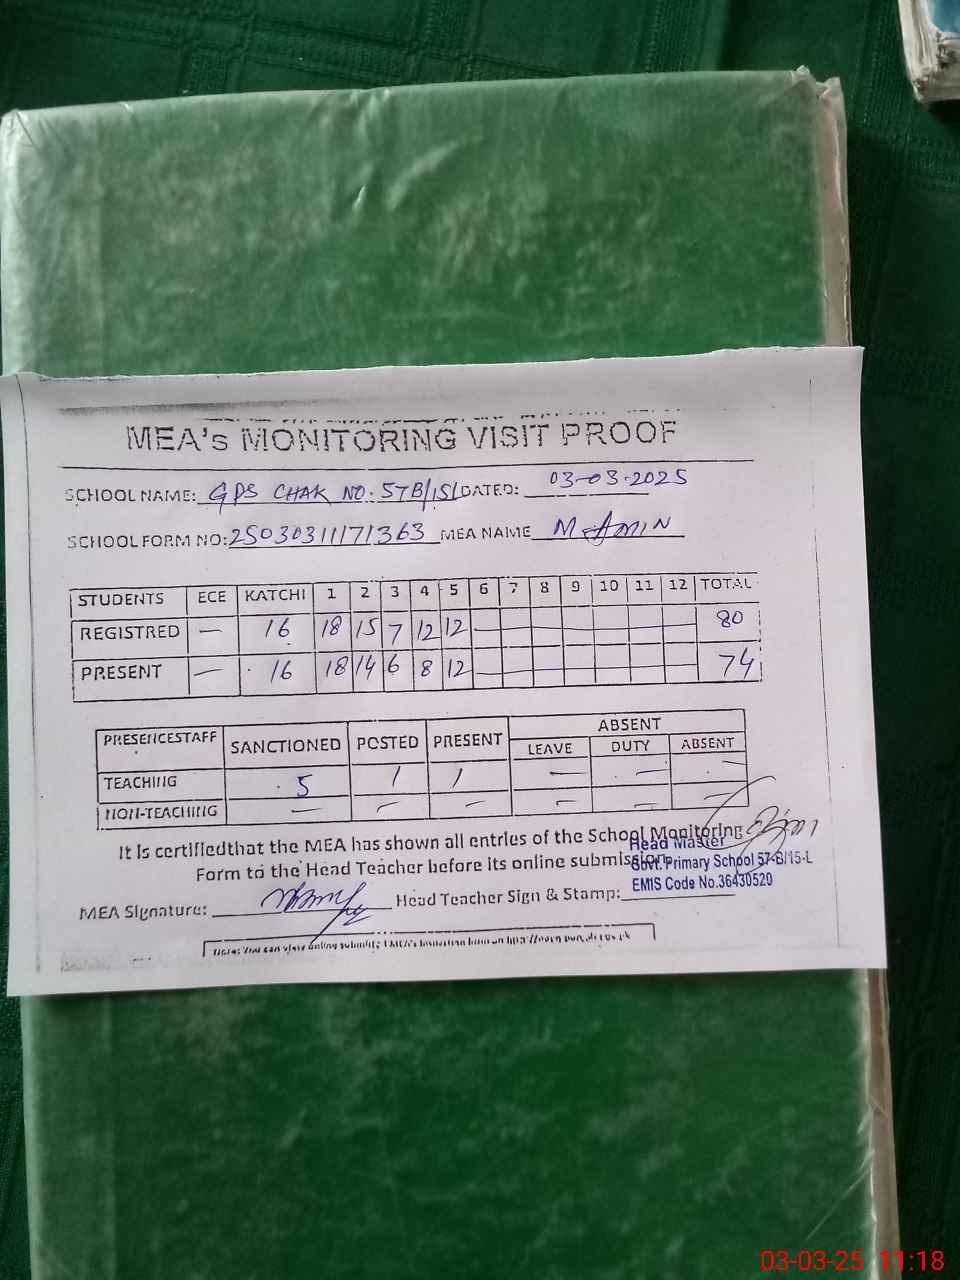 MEA's MONITORING VISIT PROOF
SCHOOL NAME: GPS CHAK NO. 57B/15L DATED: 03-03-2025
SCHOOL FORM NO: 25030311171363 MEA NAME M. Amin
STUDENTS ECE KATCHI 1 2 3 4 5 6 7 8 9 10 11 12 TOTAL
REGISTRED — 16 18 15 7 12 12 — 80
PRESENT — 16 18 14 6 8 12 — 74
PRESENCESTAFF SANCTIONED POSTED PRESENT ABSENT
LEAVE DUTY ABSENT
TEACHING 5 1 1 — — —
NON-TEACHING — — — — — —
It is certifiedthat the MEA has shown all entries of the School Monitoring
Form to the Head Teacher before its online submission.
Head Master
Govt. Primary School 57-B/15-L
EMIS Code No.36430520
MEA Signature: Head Teacher Sign & Stamp:
03-03-25 11:18